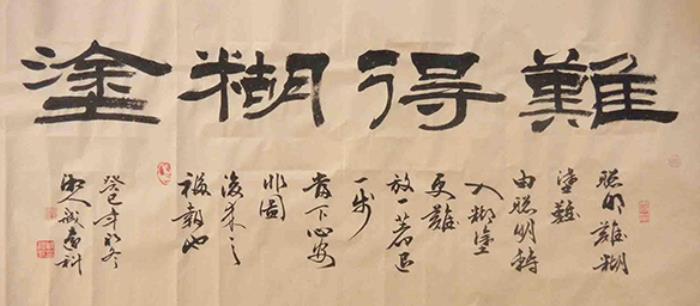 難得糊塗
聪明難糊
塗難
由聪明轉
入糊塗
更難
放一著退
一步
當下心安
非圖
後來之
福報也
癸巳年初冬